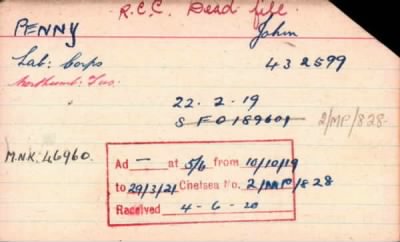 R.C.C. Dead file.
PENNY John
Lab: Corps 432599
Northumb: Fus.
22.2.19
SFO189601 2/MP/828
M.N.K. 46960.
Ad — at 5/6 from 10/10/19
to 29/3/21 Chelsea No. 2/MP/828
Received 4-6-20